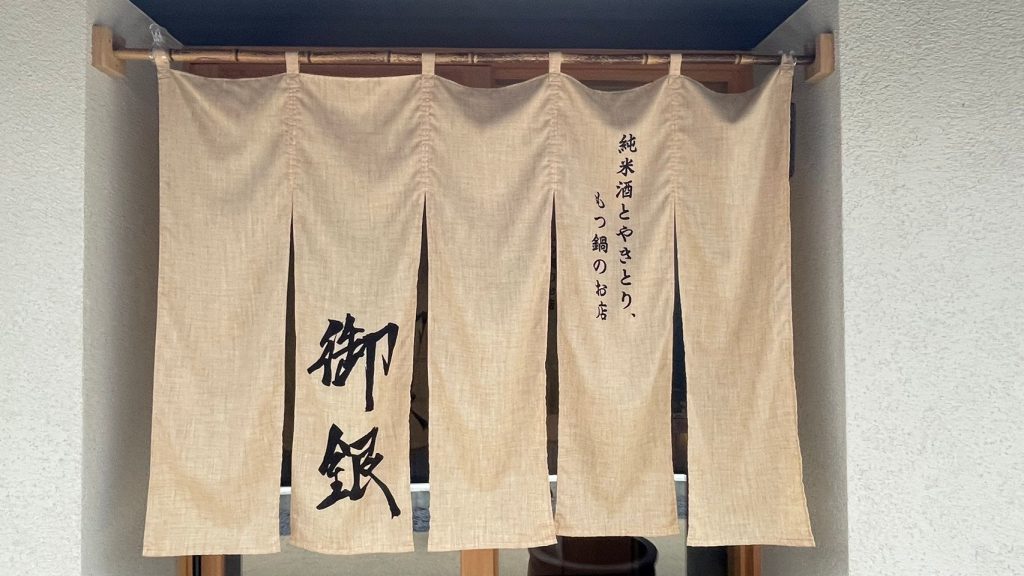 純米酒とやきとり、
もつ鍋のお店
御銀